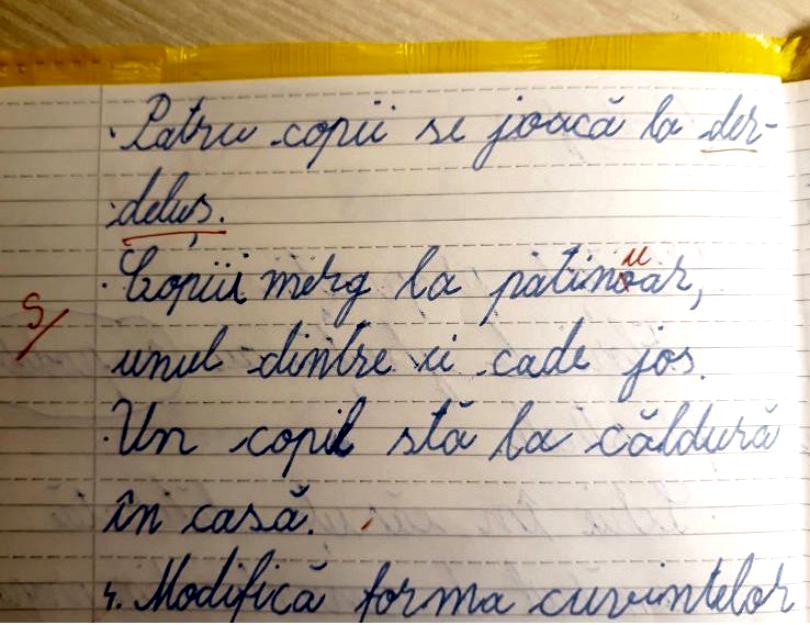 Patru copii se joacă la der-
deluș.
Copiii merg la patinoar,
u
S
unul dintre ei cade jos.
Un copil stă la căldură
în casă.
4. Modifică forma cuvintelor